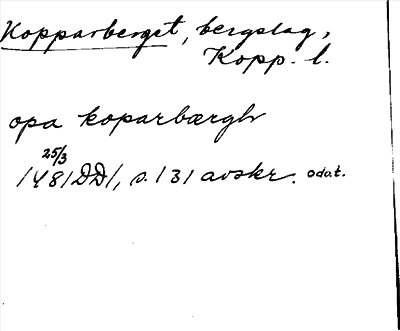 Kopparberget, bergslag,
Kopp. l.
opa koparbærgh
25/3
1481 DD1, s. 131 avskr. odat.